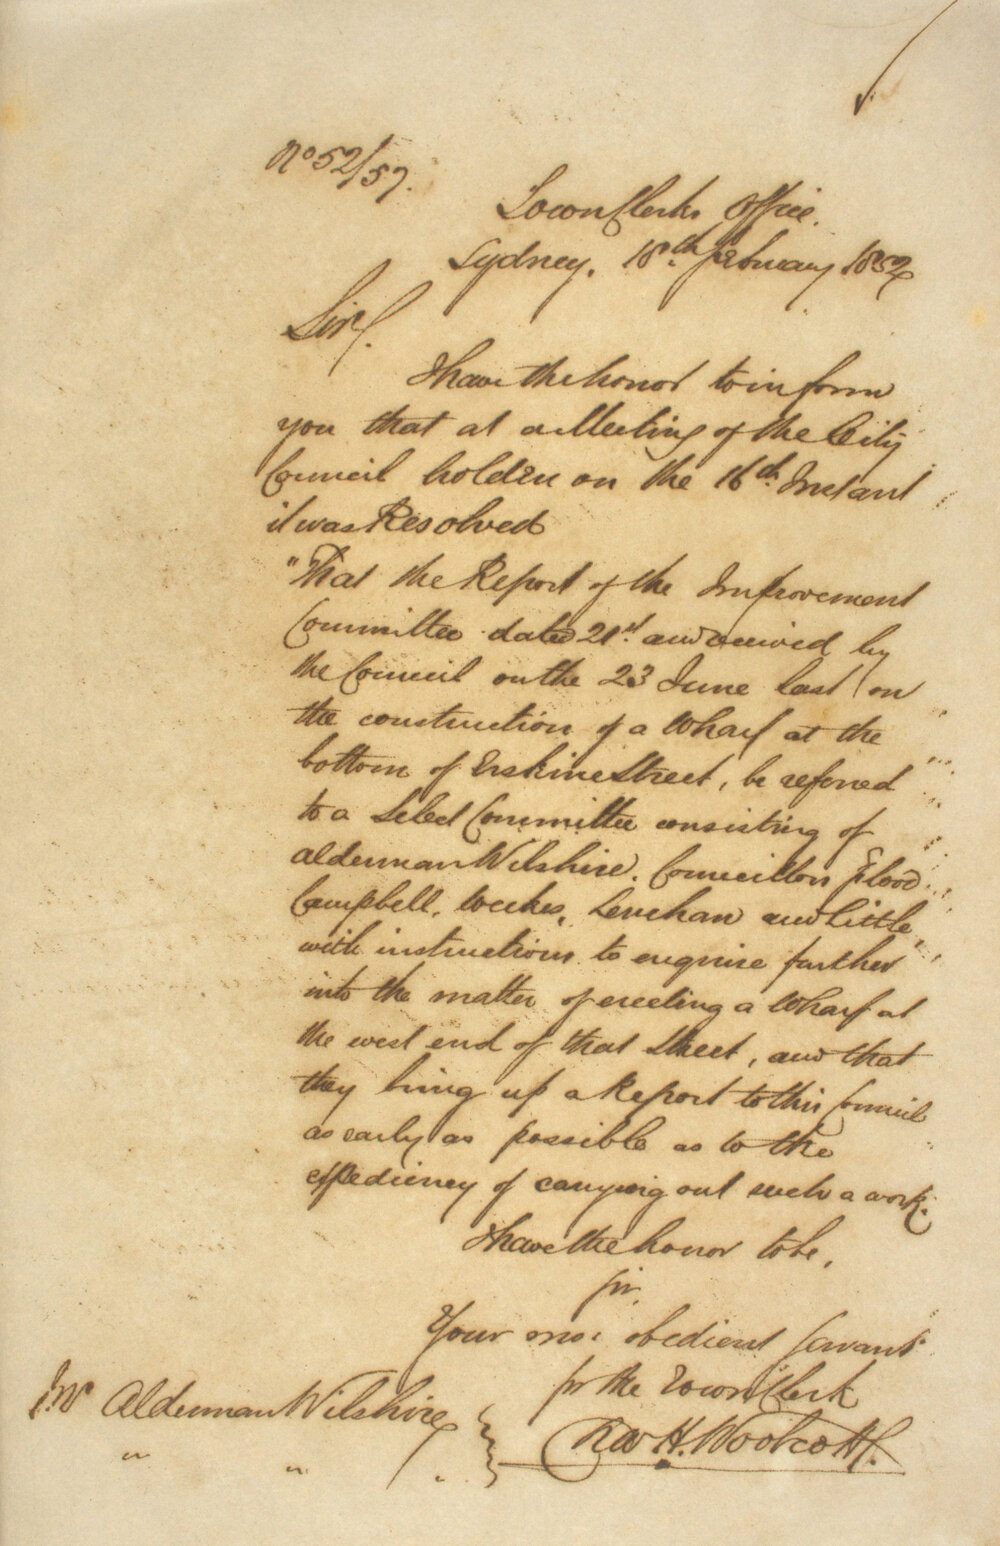 No 52/57.
Town Clerks Office.
Sydney. 18th February 1852
Sir.
I have the honor to inform
you that at a Meeting of the City
Council holden on the 16th Instant
it was Resolved
"That the Report of the Improvement
Committee dated 21st and received by
the Council on the 23 June last on
the construction of a Wharf at the
bottom of Erskine Street, be referred
to a Select Committee consisting of
Alderman Wilshire. Councillors Flood
Campbell, Weekes, Lenehan and Little,
with instructions to enquire further
into the matter of erecting a Wharf at
the west end of that Street, and that
they bring up a Report to this Council
as early as possible as to the
expediency of carrying out such a work.
I have the honor to be,
Sir,
Your obedient Servant
for the Town Clerk
Alderman Wilshire
" " "
H. Woolcott.